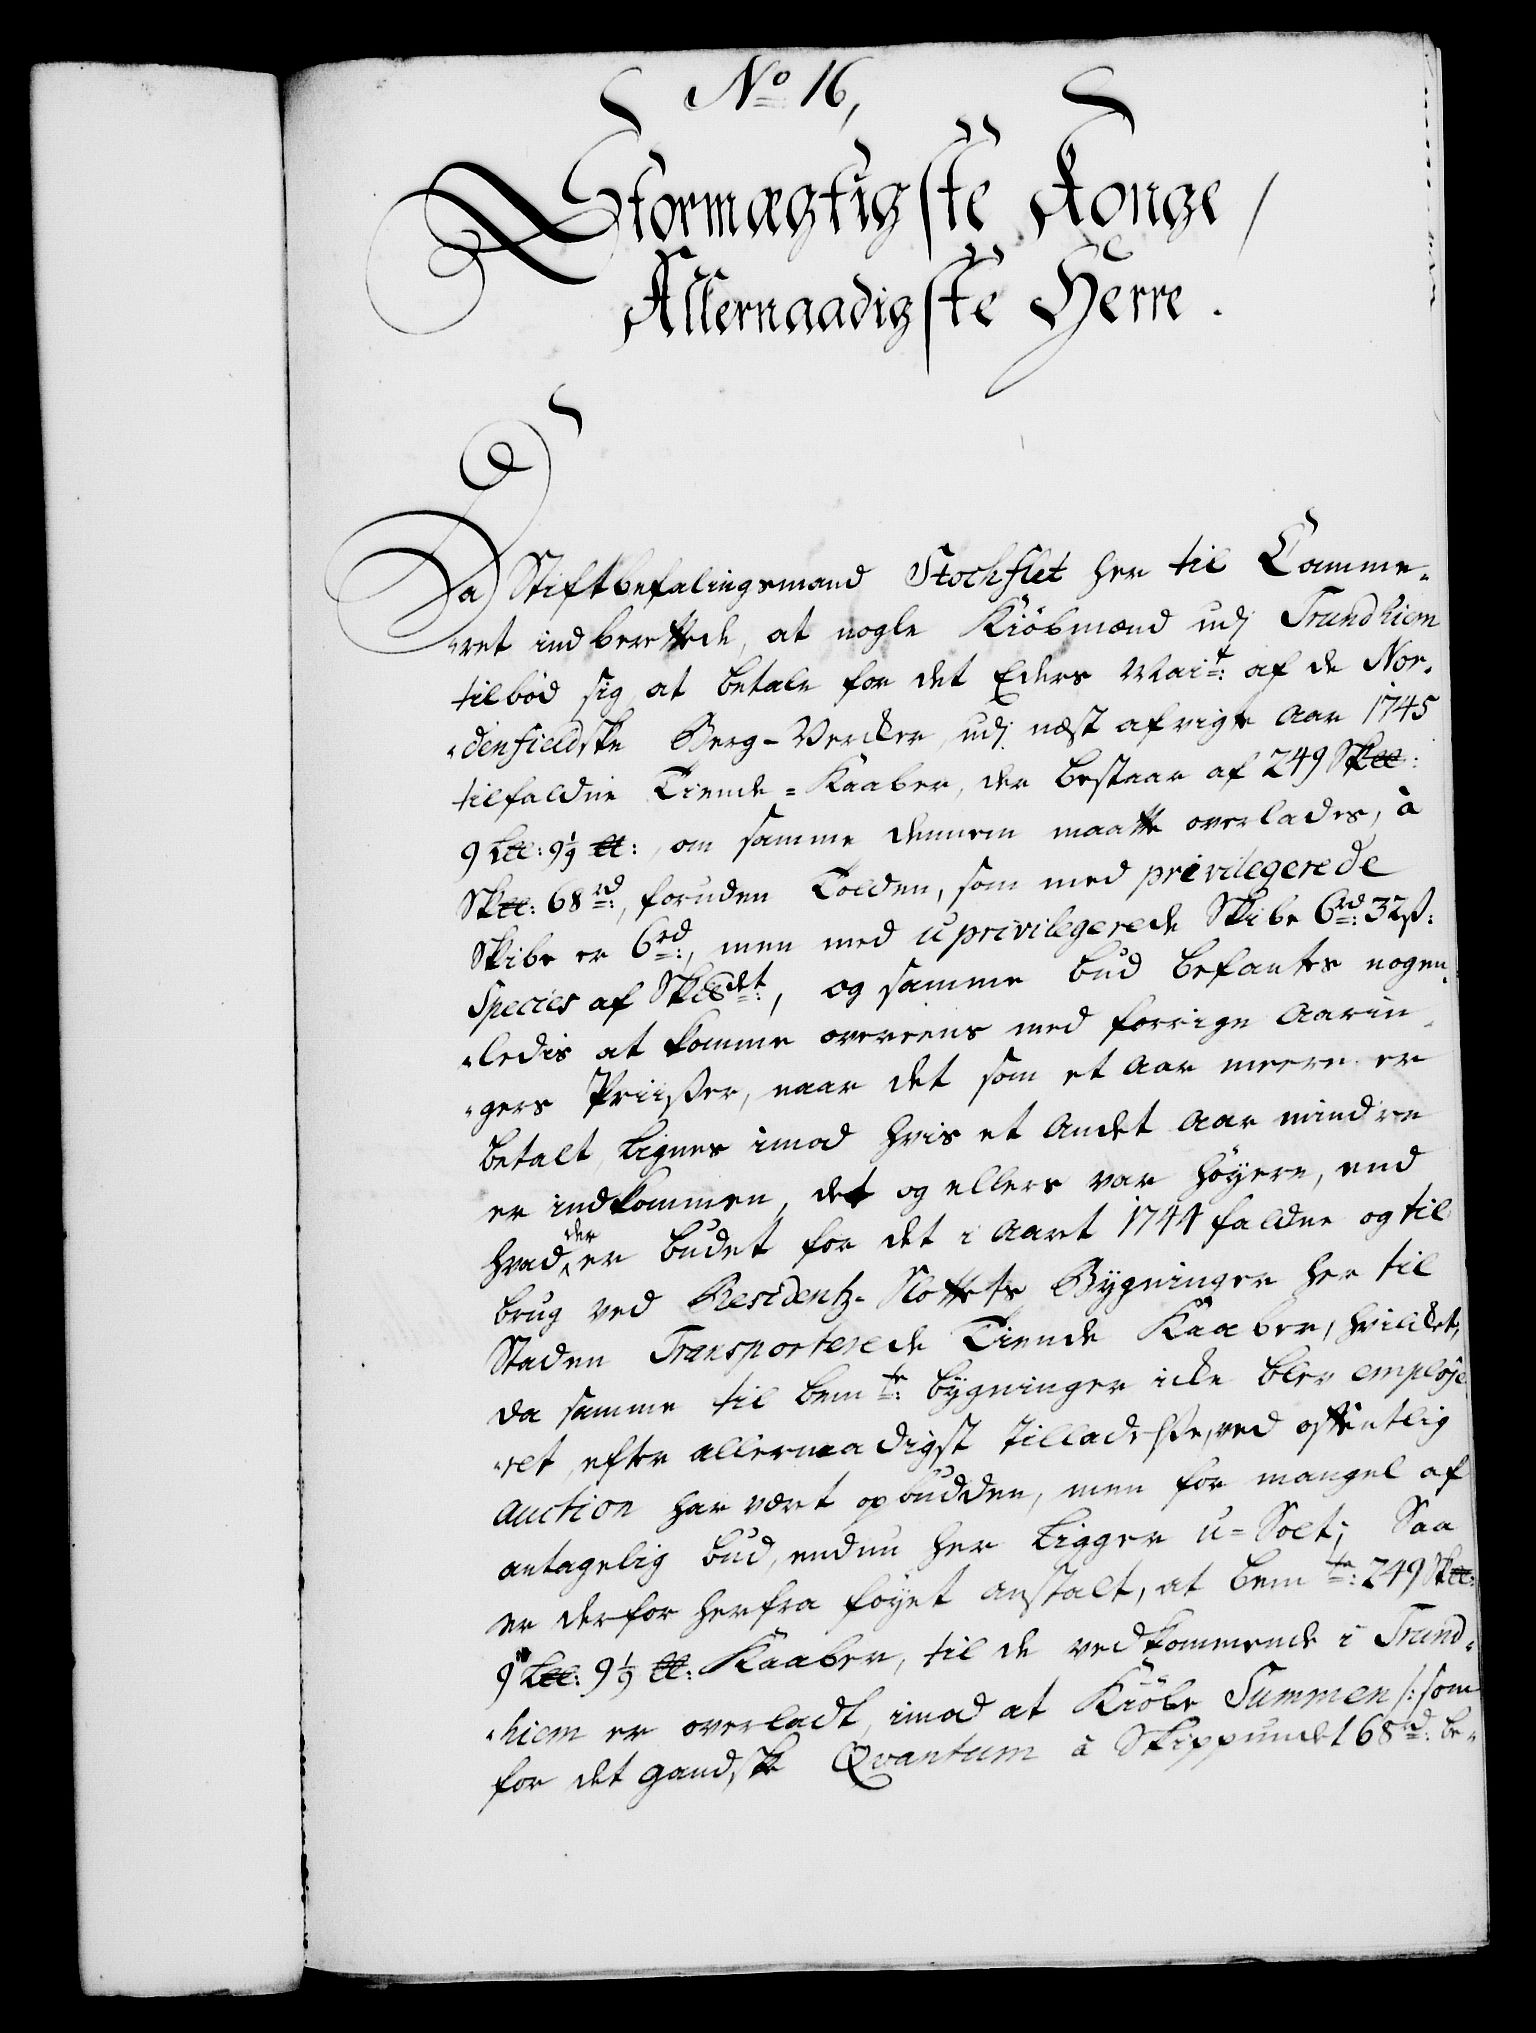 No 16,
Stormægtigste Konge/
Allernaadigste Herre.
Da Stiftbefalingsmand Stochflet her til Camme-
-ret indberettede, at nogle Kiöbmænd udj Trundhiem
tilbød sig, at betale for det Eders Mai.t: af de Nor-
-denfieldske Berg-Verker, udj næst afvigte Aar 1745
tilfaldne Tiende-Kaaber, der bestaar af 249 Sk℔:
9 L℔: 9 1/9 ℔:, om samme dennem maatte overlades, à
Sk℔: 68 rd:, foruden Tolden, som med privilegerede
Skibe er 6 rd:, men med uprivilegerede Skibe 6 rd: 32 ß:
Species af Sk℔det:, og samme bud befantes nogen-
-ledis at komme overeens med forrige Aarin-
-gers Priißer, naar det som et Aar meere er
betalt, lignes imod hvis et Andet Aar mindre
er indkommen, det og ellers var høyere, end
hvad der er budet for det i Aaret 1744 faldne og til
brug ved Residentz-Slottets Bygninger her til
Staden Transporterede Tiende Kaaber, hvilket,
da samme til bemte: bygninger icke blev employe-
-ret, efter allernaadigst tilladelße, ved offentlig
Auction har vært opbudden, men for mangel af
antagelig bud, endnu her ligger u-Solt; Saa
er derfor herfra føyet anstalt, at bemte: 249 Sk℔:
9 L℔: 9 1/9 ℔: Kaaber, til de vedkommende i Trund-
-hiem er overladt, imod at Kiöbe Summen /: som
for det gandske Qvantum à Skippundet 68 rd: be-